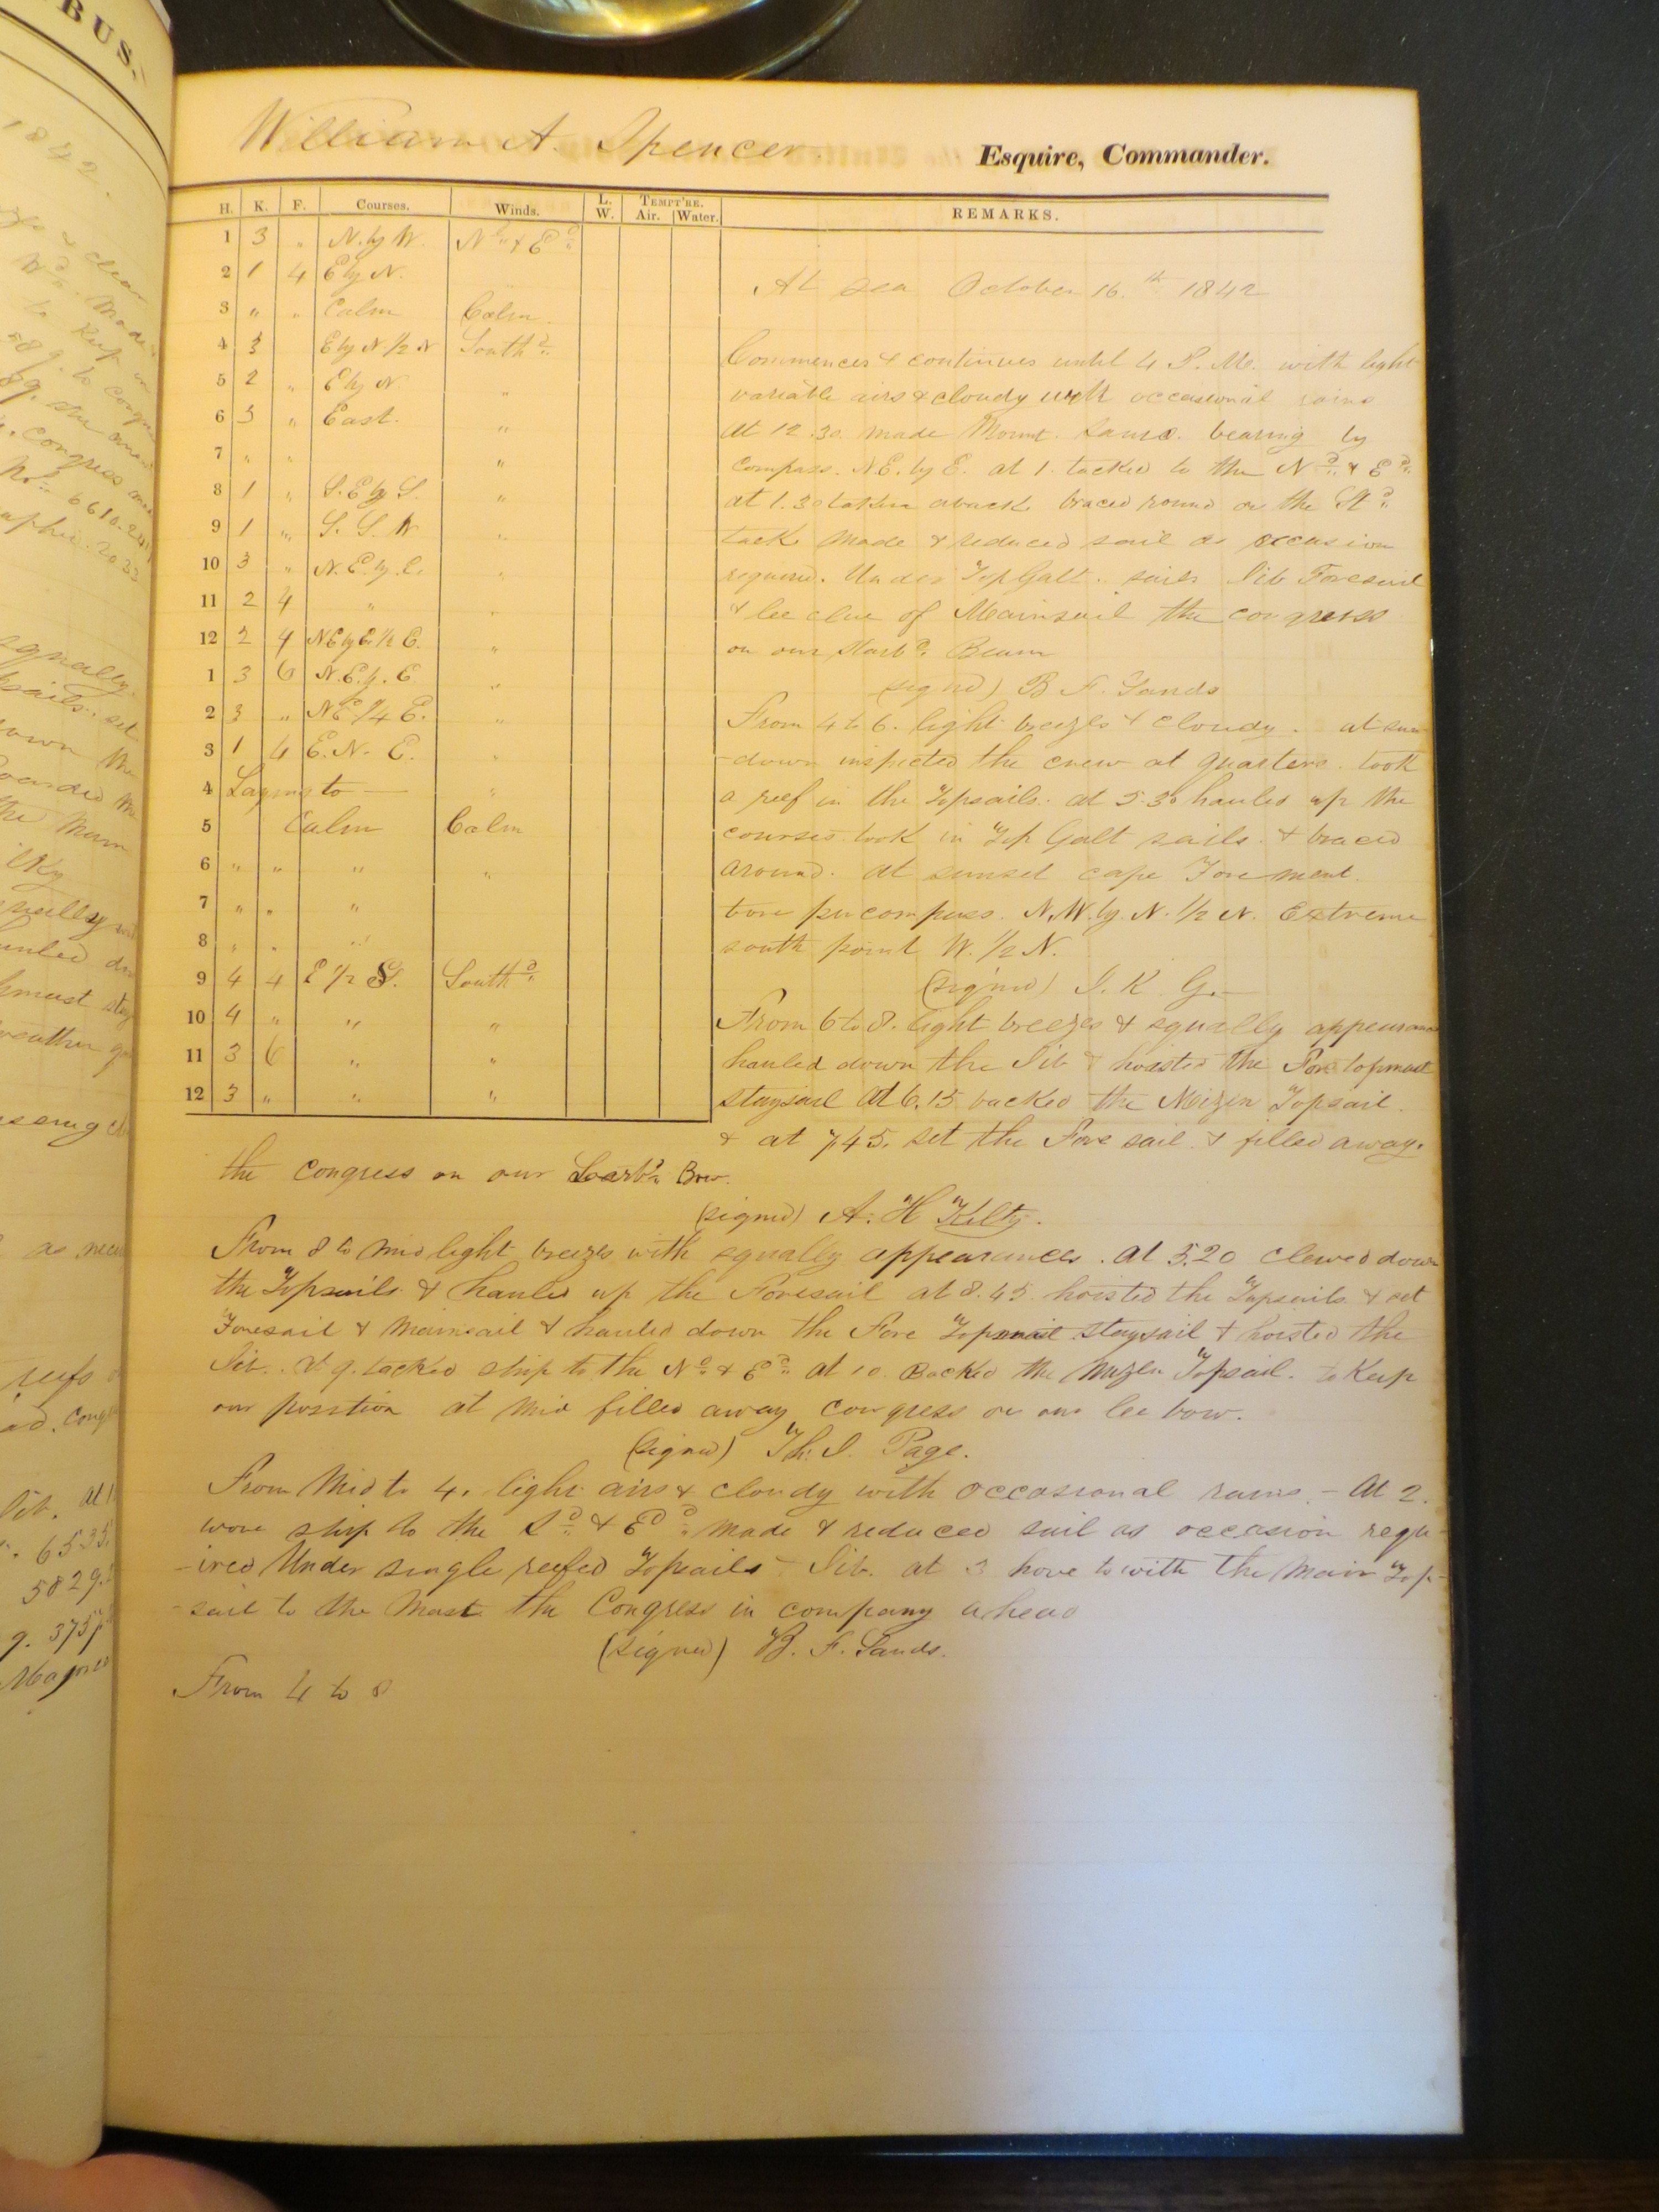 BUS.
1842.
William A. Spencer. Esquire, Commander.
H. K. F. Courses. Winds. L. W. TEMPT'RE. Air. Water. REMARKS.
1 3 " N. by W. Nd & Ed
2 1 4 E by N.
At Sea October 16.th 1842
3 " " Calm Calm.
4 3 E by N 1/2 N Southd
5 2 " E by N. "
6 3 " East. "
7 " " "
8 1 " S. E by S. "
9 1 " S. S. W "
10 3 " N. E. by E. "
11 2 4 " "
12 2 4 NE by E. 1/2 E. "
1 3 6 N. E. by. E. "
2 3 " NE 1/4 E. "
3 1 4 E. N. E. "
4 Laying to "
5 Calm Calm
6 " " " "
7 " " "
8 " " "
9 4 4 E 1/2 S. Southd
10 4 " " "
11 3 6 " "
12 3 " " "
Commences & continues until 4 P. M. with light
variable airs & cloudy with occasional rains
At 12.30. made Mount. bearing by
compass. N.E. by E. at 1. tacked to the Nd & Ed
at 1.30 taken aback braced round on the Std
tack made & reduced sail as occasion
required. Under TopGalt. sails Jib Foresail
& lee clue of Mainsail the congress
on our Starbd. Beam
(signed) B F. Sands
From 4 to 6. light breezes & cloudy. at sun
-down inspected the crew at quarters. took
a reef in the Topsails. at 5.30 hauled up the
courses took in Top Galt sails. & braced
around. at sunset cape Forement.
bore per compass. N.W. by. N. 1/2 N. Extreme
south point W. 1/2 N.
(signed) J. K G.
From 6 to 8. light breezes & squally appearance
hauled down the Jib & hoisted the Fore topmast
staysail At 6.15 backed the Mizen Topsail.
& at 7.45. set the Fore sail. & filled away.
the Congress on our Larbd. Bow.
(signed) A. H Kilty.
From 8 to mid light breezes with squally appearances. at 5.20 clewed down
the Topsails & hauled up the Foresail at 8.45 hoisted the Topsails & set
Foresail & Mainsail & hauled down the Fore Topmast staysail & hoisted the
Jib. At 9. tacked ship to the Nd & Ed at 10 Backed the Mizen Topsail. to Keep
our position at Mid filled away Congress on our lee bow.
(signed) Th. J. Page.
From Mid to 4. light airs & cloudy with occasional rains. - At 2.
wore ship to the Sd & Ed made & reduced sail as occasion requ-
-ired Under single reefed Topsails - Jib. at 3 hove to with the Main Top-
-sail to the Mast the Congress in company ahead
(signed) B. F. Sands.
From 4 to 8